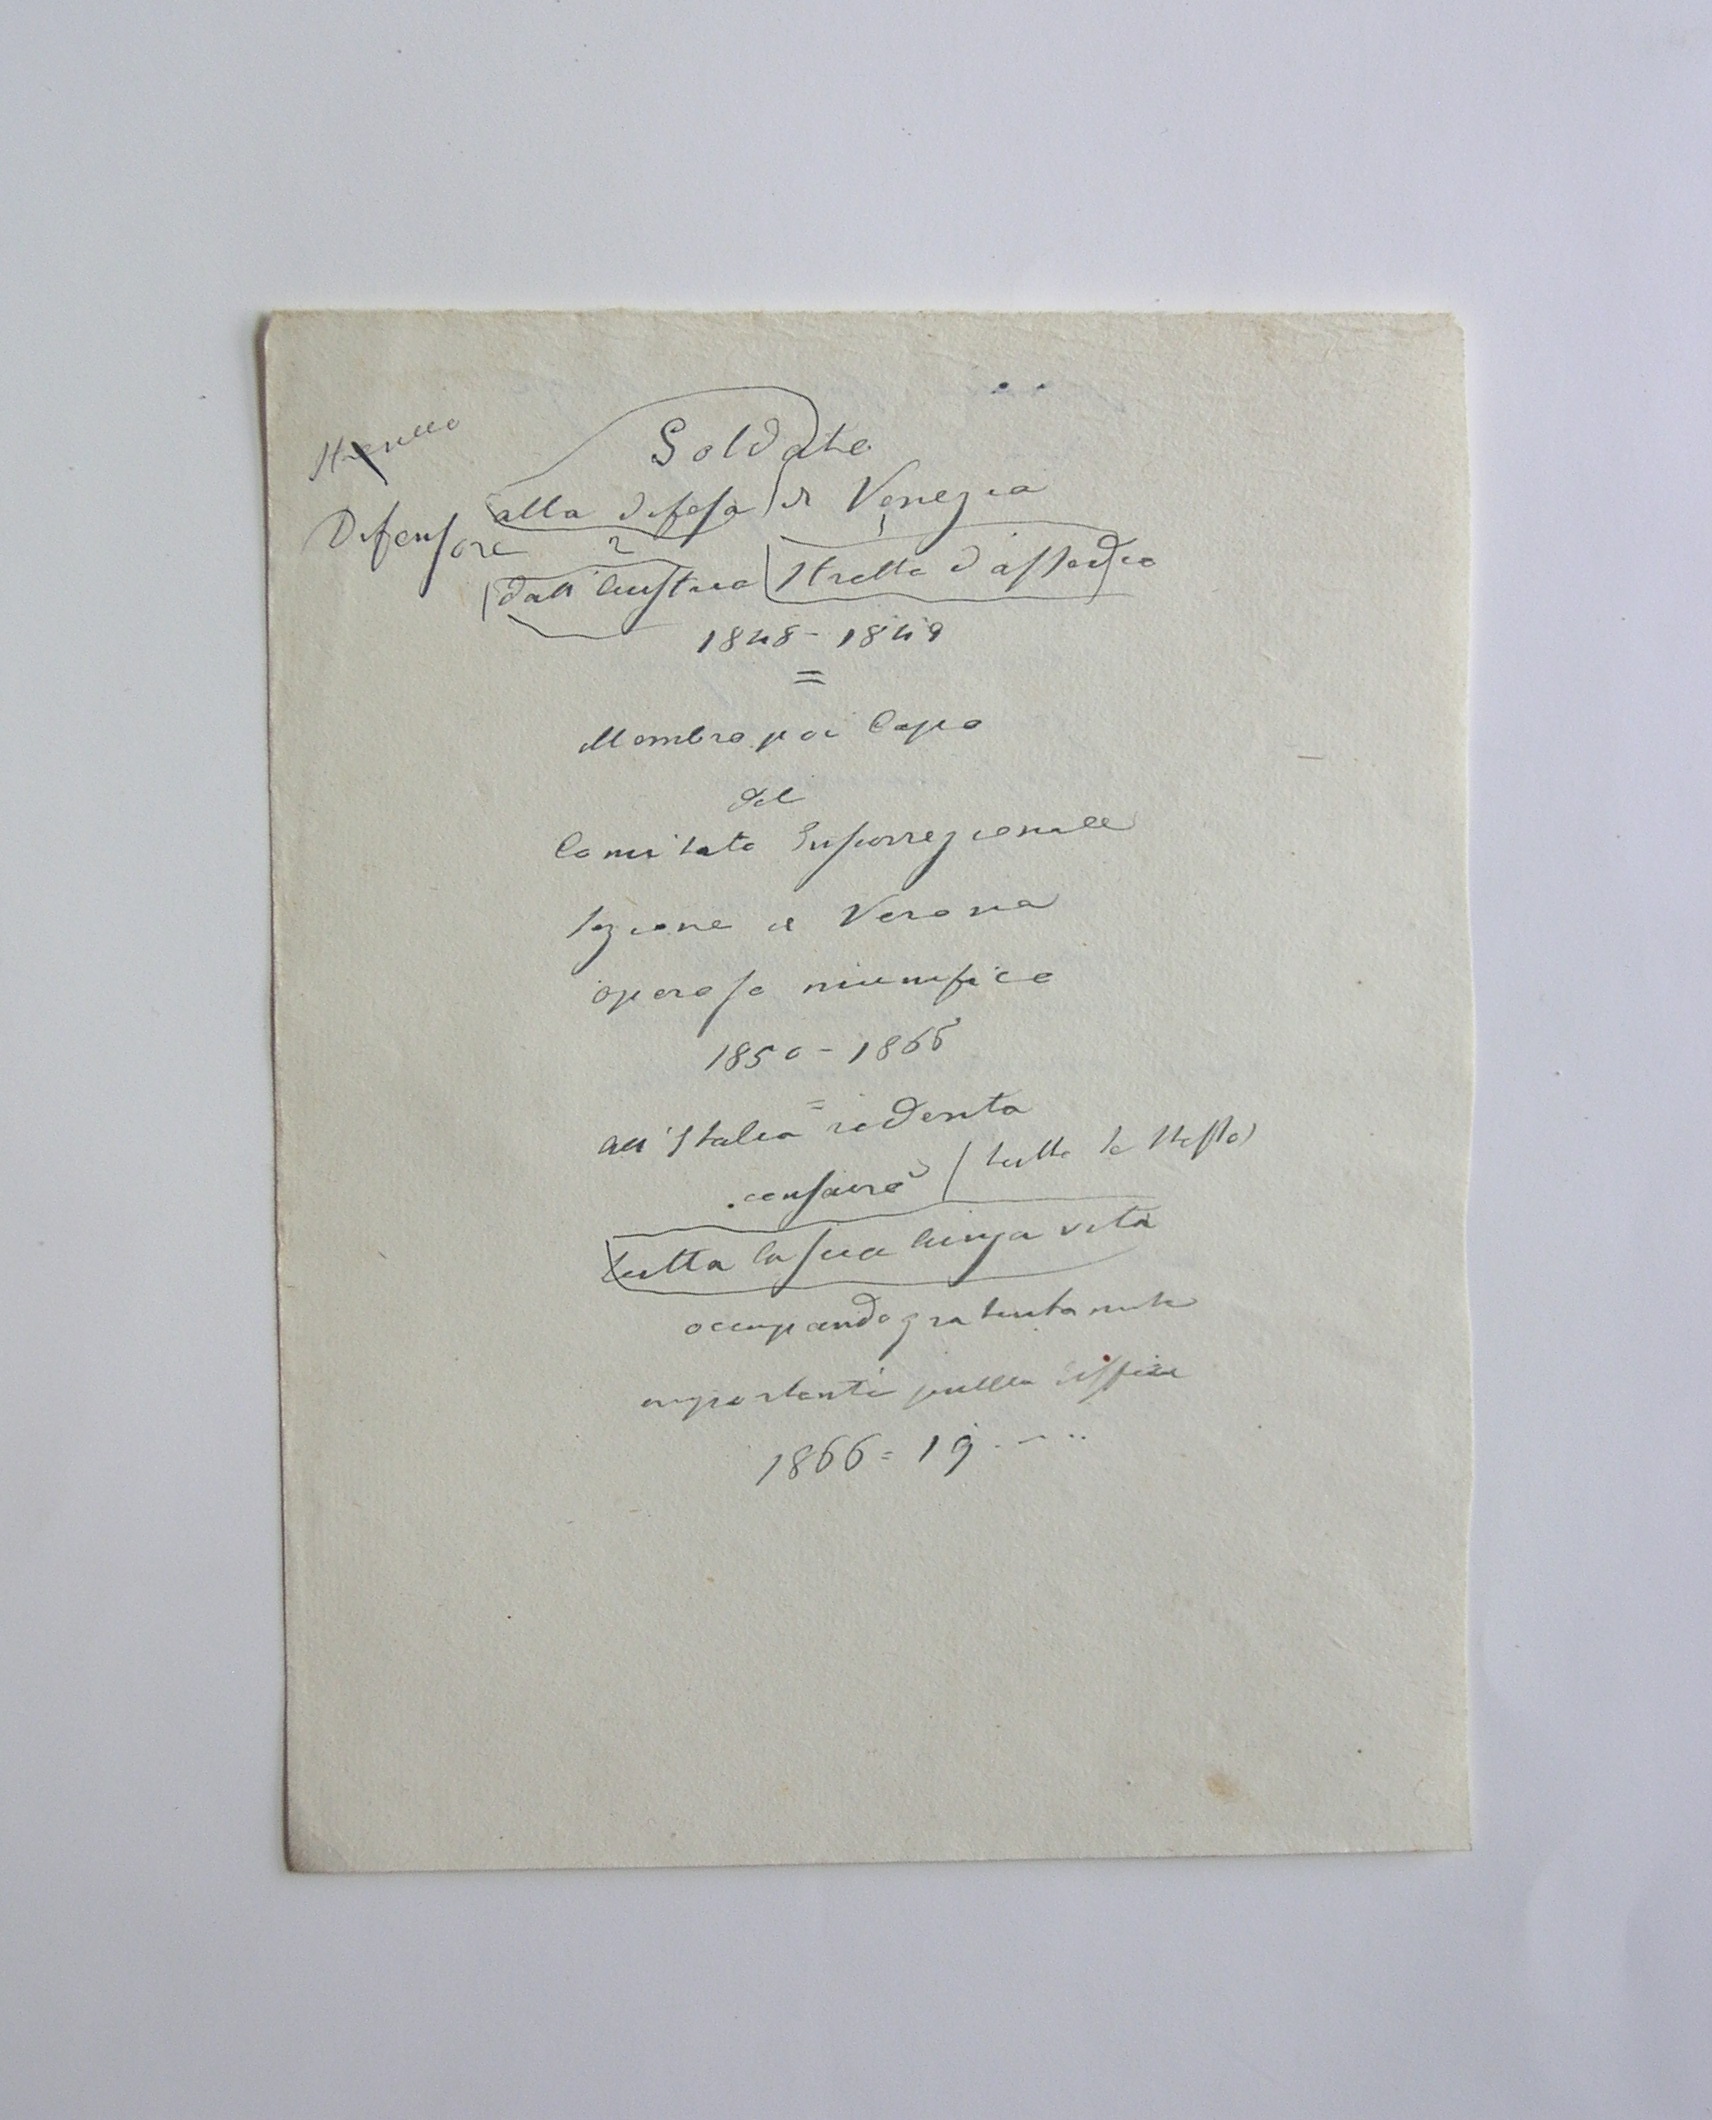 Strenuo
Soldato
Difensore
alla difesa di Venezia
2 1
dall'Austria stretta d'assedio
1848 - 1849
=
Membro poi Capo
del
Comitato Insurrezionale
Azione a Verona
operoso munifico
1850 - 1866
=
all'Italia redenta
consacrò tutto se stesso
tutta la sua lunga vita
occupando gratuitamente
importanti pubblici uffici
1866 = 19 - - ..